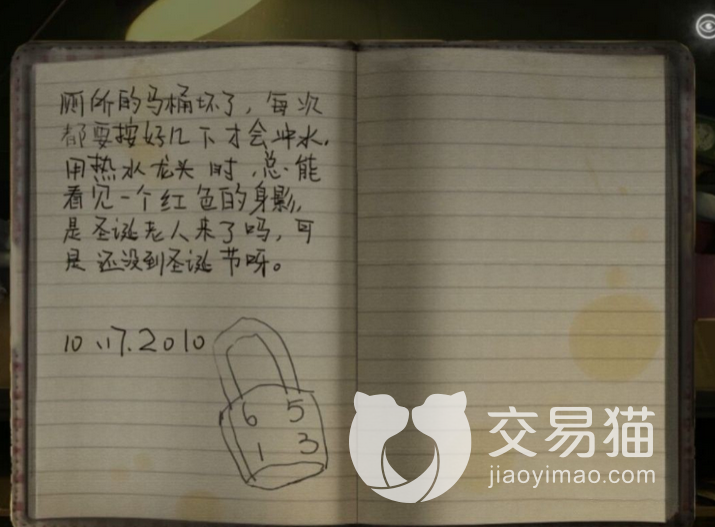 厕所的马桶坏了，每次
都要按好几下才会冲水，
用热水龙头时，总能
看见一个红色的身影，
是圣诞老人来了吗，可
是还没到圣诞节呀。
10.17.2010
6 5
1 3
交易猫
jiaoyimao.com